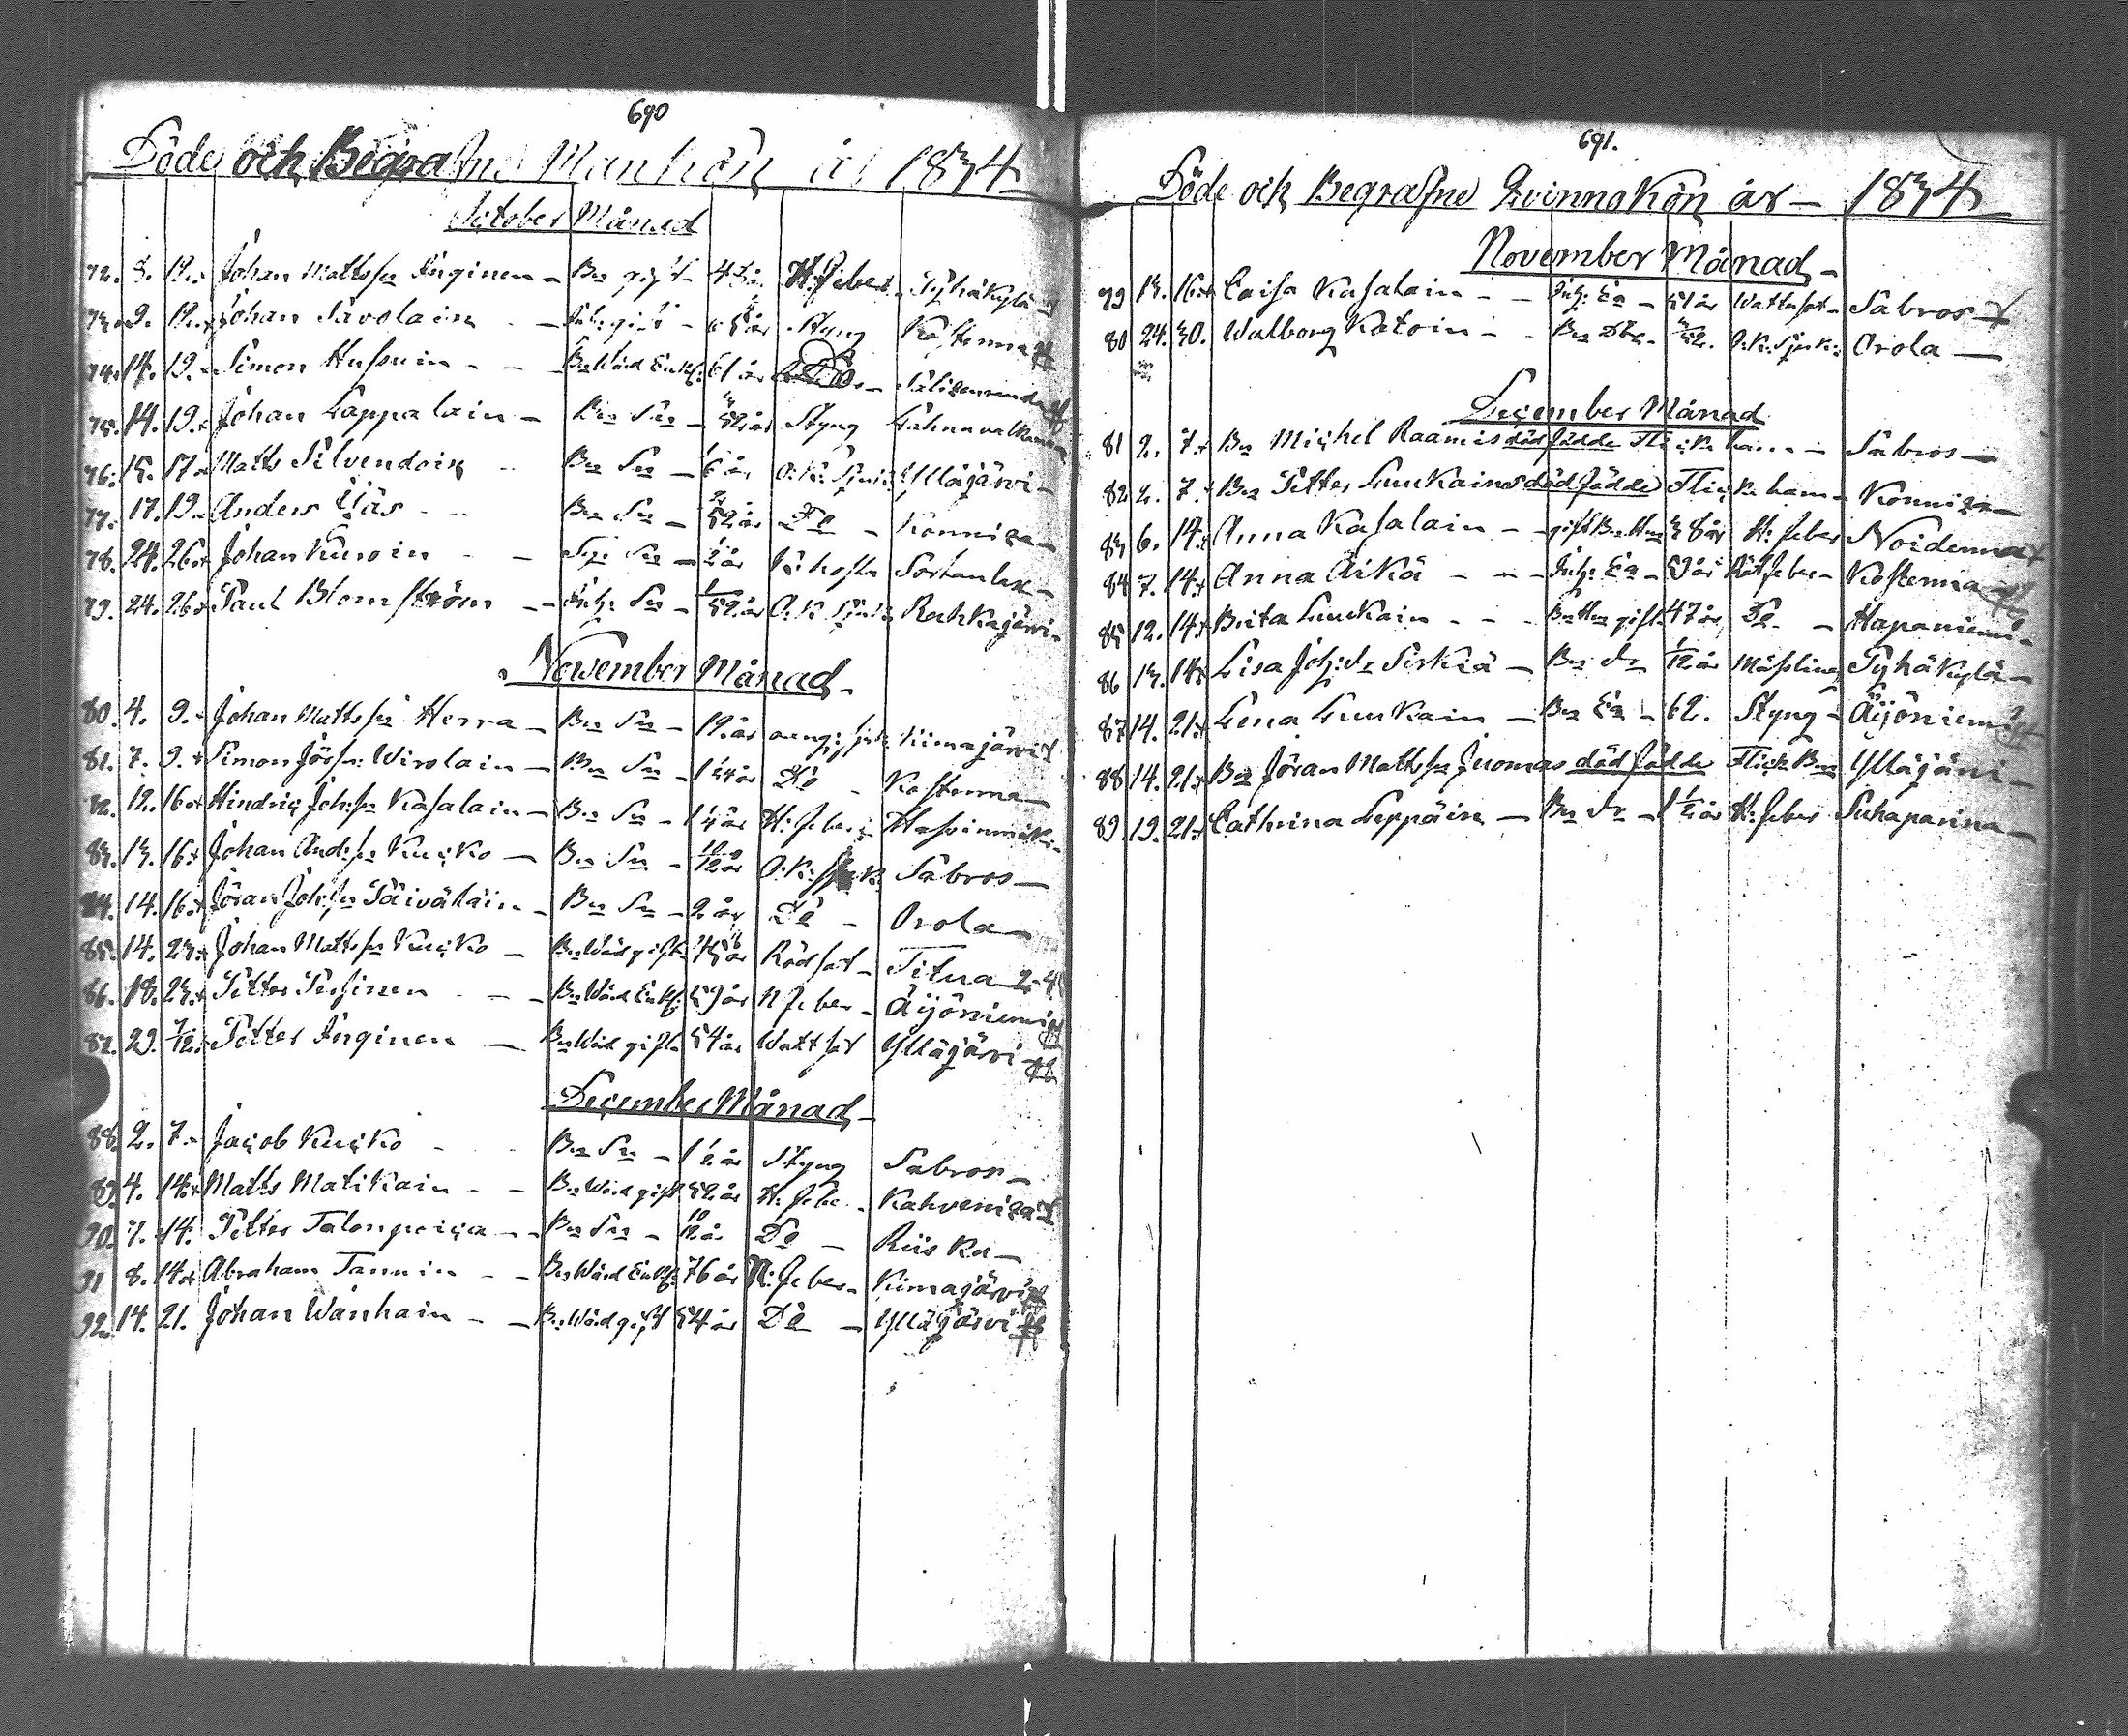 690
Döde och Begrafne Mankön år 1834
October Månad
72. 5. 12. Johan Mattsson Inginen – Bn gift – 43 år. H. feber. Pyhäkylä
73. 9. 12. Johan Savolain – Inh: gift – Styng Kostermaa
74. 14. 19. Simon Hussuin – Bn Wärd Enkl: 61 år
75. 14. 19. Johan Lappalain – Bn Sn – 3/52 år Styng
76. 15. 17. Matts Silvendoin Bn Sn – 6 år O.K. Sjuk: Ylläjärvi –
77. 17. 19. Anders Äijäs Bn Sn – 2/52 år Do – Konniza –
78. 24. 26. Johan Kuroin – Sn – 1/2 år Kikhosta
79. 24. 26. Paul Blomström – Inh: Sn – 1/52 år O.K. Sjuk: Rahkajärvi –
November Månad –
80. 4. 9. Johan Mattsson Herra – Bn Sn – 19 år Kimajärvi
81. 7. 9. Simon Jörss: Wirolain – Bn Sn – 1 1/4 år Do – Kosterma –
82. 12. 16. Hindric Johsson Kasalain – Bn Sn – 1 1/4 år H: feber
83. 13. 16. Johan Andsson Kucko – Bn Sn – 10/12 år O.K: Sjuk: Sabros –
84. 14. 16. Jöran Johsson Päiväläin – Bn Sn – 2 år Do – Orola –
85. 14. 23. Johan Mattsson Kucko – Bn Wärd gift Rödsot – Titua
86. 18. 23. Petter Pessinen – Bn Wärd Enkl: 59 år N feber – Äijöniemi
87. 29. 7/12. Petter Inginen – Bn Wärd gift 54 år Watt sot Ylläjärvi
December Månad –
88. 2. 7. Jacob Kucko – Bn Sn – 1 1/2 år Styng Sabros –
89. 4. 14. Matts Matikain – Bn Wärd gift 52 år H: feber – Kahveniza
90. 7. 14. Petter Talonpoica – Bn Sn – 10/12 år Do – Riiska –
91 8. 14. Abraham Tannin – Bn Wärd Enkl: 76 år N: feber – Kimajärvi
92. 14. 21. Johan Wanhain – Bn Wärd gift 54 år Do – Ylläjärvi
691.
Döde och Begrafne Qvinnokön år – 1834
November Månad –
79 13. 16. Caisa Kasalain – Inh: Ea – 51 år Wattusot – Sabros
80 24. 30. Walborg Katoin – Bn Dtr – 3/52. O.K: Sjuk: Orola –
December Månad
81 2. 7. Bn Michel Raamis död födde Flicke barn – Sabros –
82 2. 7. Bn Petter Luukaines död födde Flicke barn – Konniza –
83 6. 14. Anna Kasalain – gift Bn Hu 38 år H: feber Noidenmaa
84 7. 14. Anna Äikä – Inh: Ea – 59 år Röt feber – Kosterma
85 12. 14. Brita Luukain – Bn Hu gift 47 år Do – Hapaniemi –
86 13. 14. Lisa Joh: dr Sirkiä – Bn dr 1/12 år Mässling Pyhäkylä –
87 14. 21. Lena Luukain – Bn Ea – 62. Styng – Äijöniemi
88 14. 21. Bn Jöran Mattsson Juomas död födde Flicke Bn Ylläjärvi –
89. 19. 21. Cathrina Seppäin – Bn dr – 1 1/2 år H: feber Suhaparina –